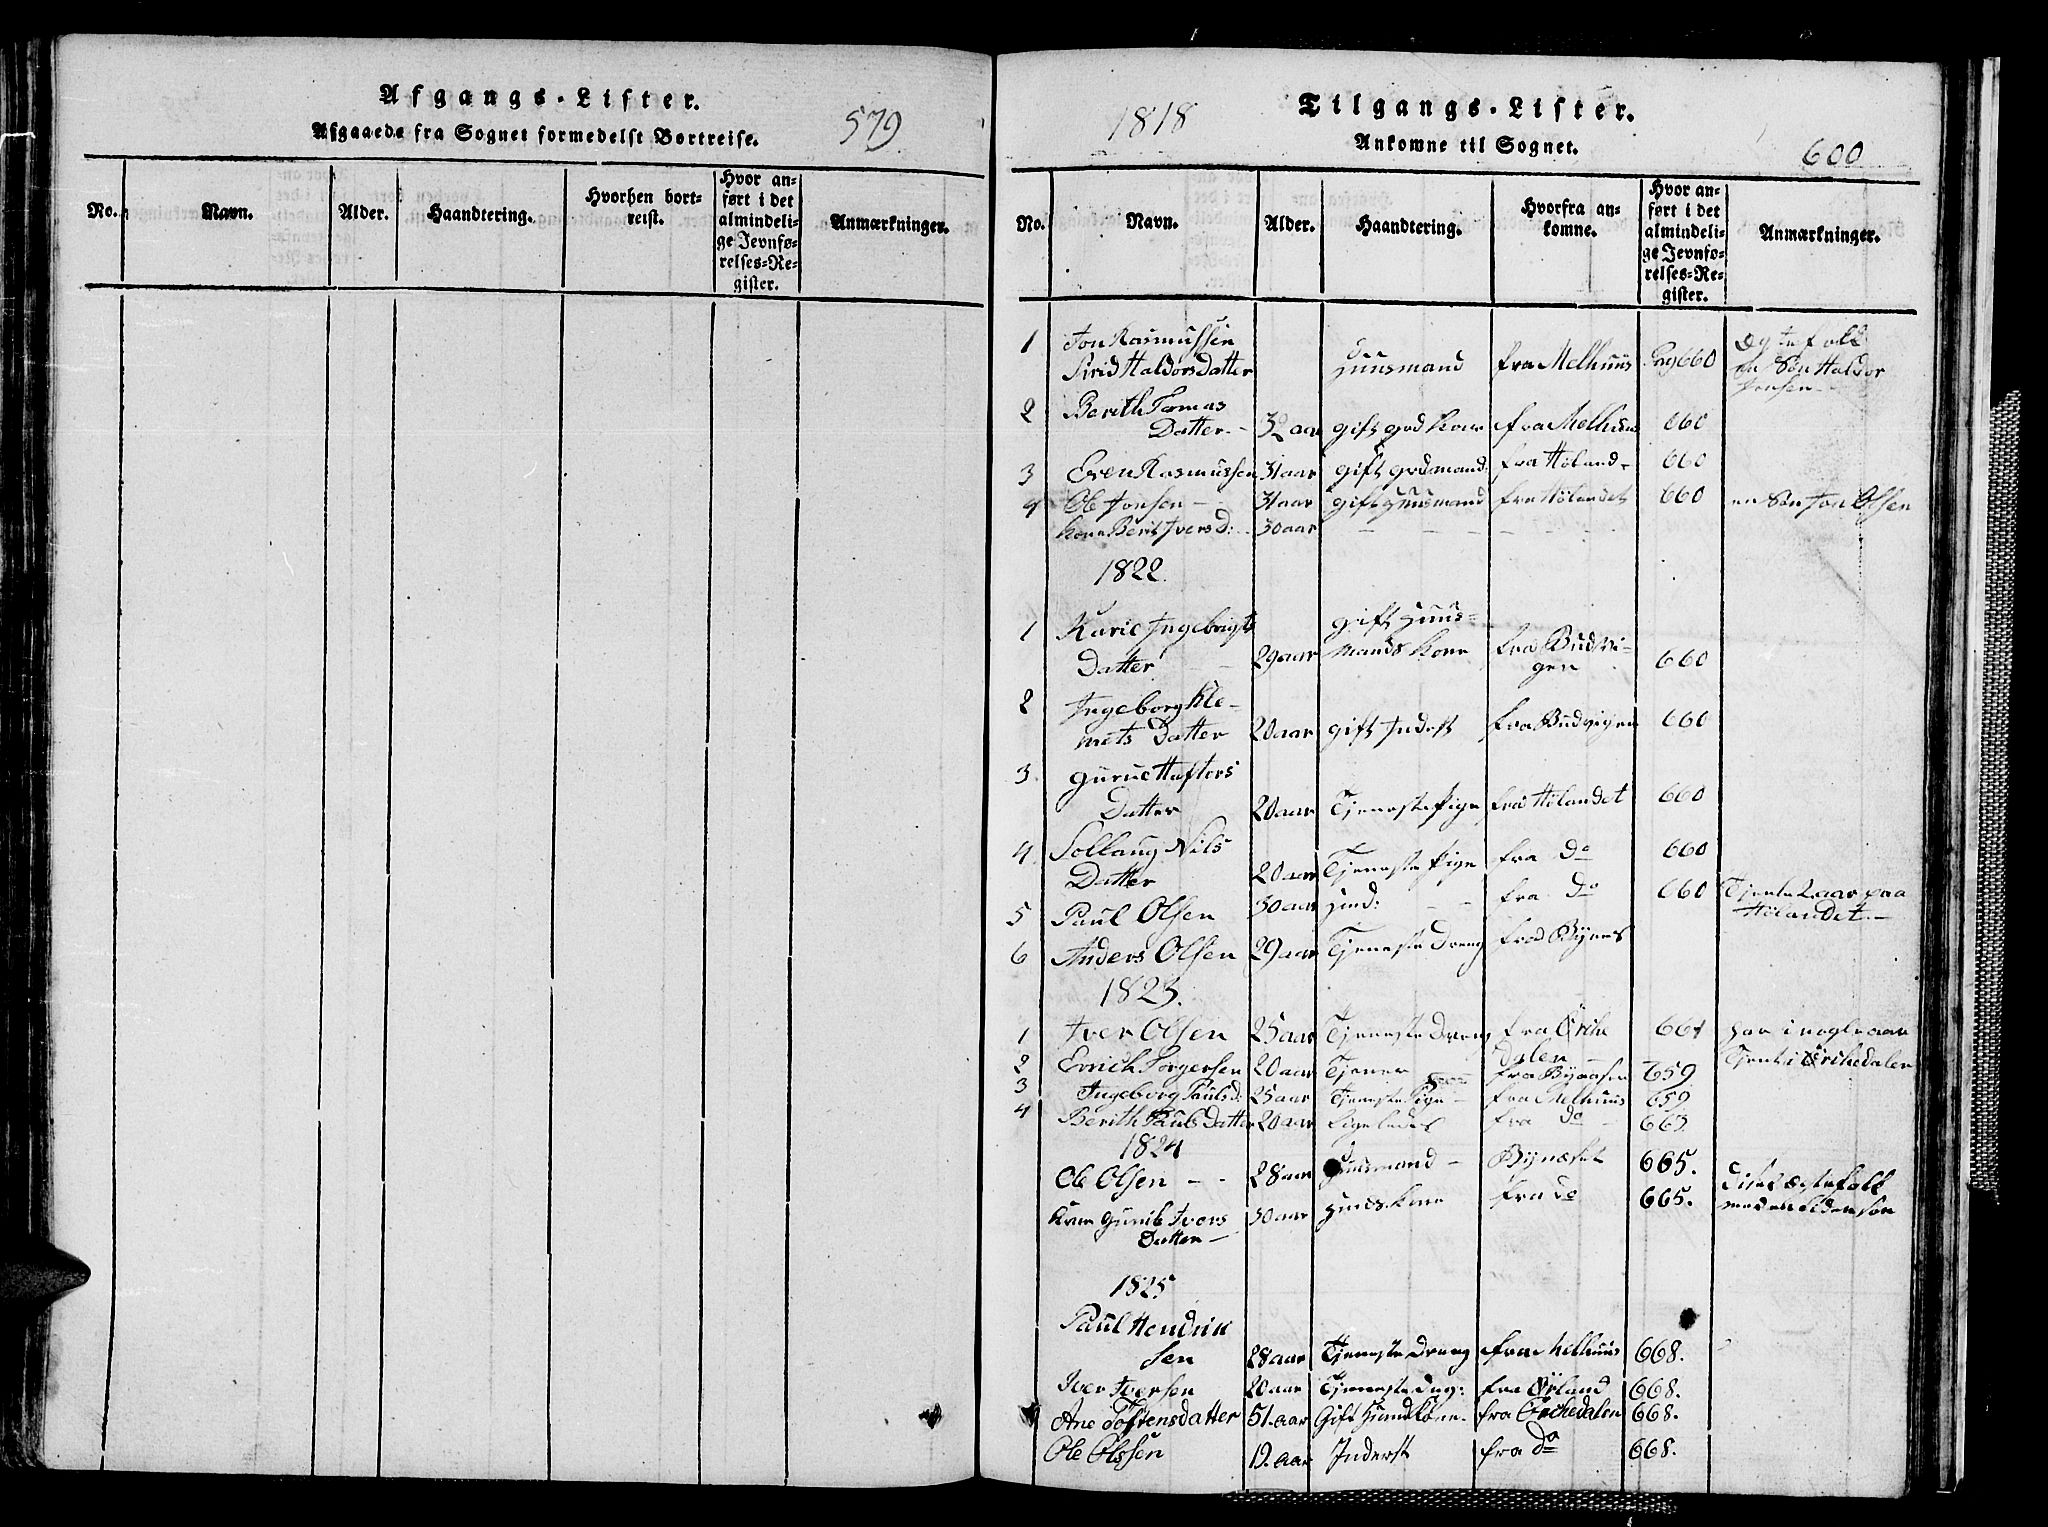 Afgangs-Lister.
579
Afgaaede fra Sognet formedelst Bortreise.
No. Navn. Alder. Haandtering. Hvorhen bortreist. Hvor anført i det almindelige Jevnførelses-Register. Anmærkninger.
1818
Tilgangs-Lister.
Ankomne til Sognet.
600
No. Navn. Alder. Haandtering. Hvorfra ankomne. Hvor anført i det almindelige Jevnførelses-Register. Anmærkninger.
1 Jon Rasmussen
Sirid Haldorsdatter Huusmand fra Melhuus Pag 660 Ægtefolk en Søn Haldor Jonsen
2 Berith Tomas
Datter 30 aar gift grd kone fra Melhuus 660
3 Even Rasmussen 31 aar gift grdmand: fra Höland 660
4 Ole Jonsen 31 aar gift Huusmand fra Hölandet 660 en Søn Jon Olsen
Kone Berit Ivers d: 30 aar
1822.
1 Karie Ingebrigts
Datter 29 aar gift Huusmands Kone fra Budvigen 660
2 Ingeborg Klemets Datter 20 aar gift Inderst fra Budvigen 660
3. Gurue Haftors
Datter 20 aar Tjeneste Pige fra Hölandet 660
4 Sollaug Nils
Datter 20 aar Tjeneste Pige fra do 660
5 Paul Olsen 30 aar Ind: fra do 660 Tjente 2 aar paa Hölandet
6 Anders Olsen 29 aar Tjeneste Dreng fra Bynes
1823.
1 Iver Olsen 25 aar Tjeneste Dreng fra Örkedalen 661 har i nogle aar Tjent i Örkedalen
2 Erich Torgersen 20 aar Tjener fra Byaasen 659
3 Ingeborg Pauls d: 25 aar Tjeneste Pige fra Melhuus 659
4 Berith Pauls Datter 20 aar Ligeledes fra do 663
1824
Ole Olsen 28 aar Huusmand Bynæset 665. Disse Ægtefolk
Kone Gunild Ivers
Datter 30 aar Huus kone fra do 665. med en liden søn
1825
Paul Hendriksen 28 aar Tjeneste Dreng fra Melhuus 668.
Iver Iversen 20 aar Tjeneste dng: fra Örland 668.
Ane Tostensdatter 51. aar Gift Huusmkone. fra Orchedalen 668.
Ole Olssen 19. aar Inderst fra do 668.